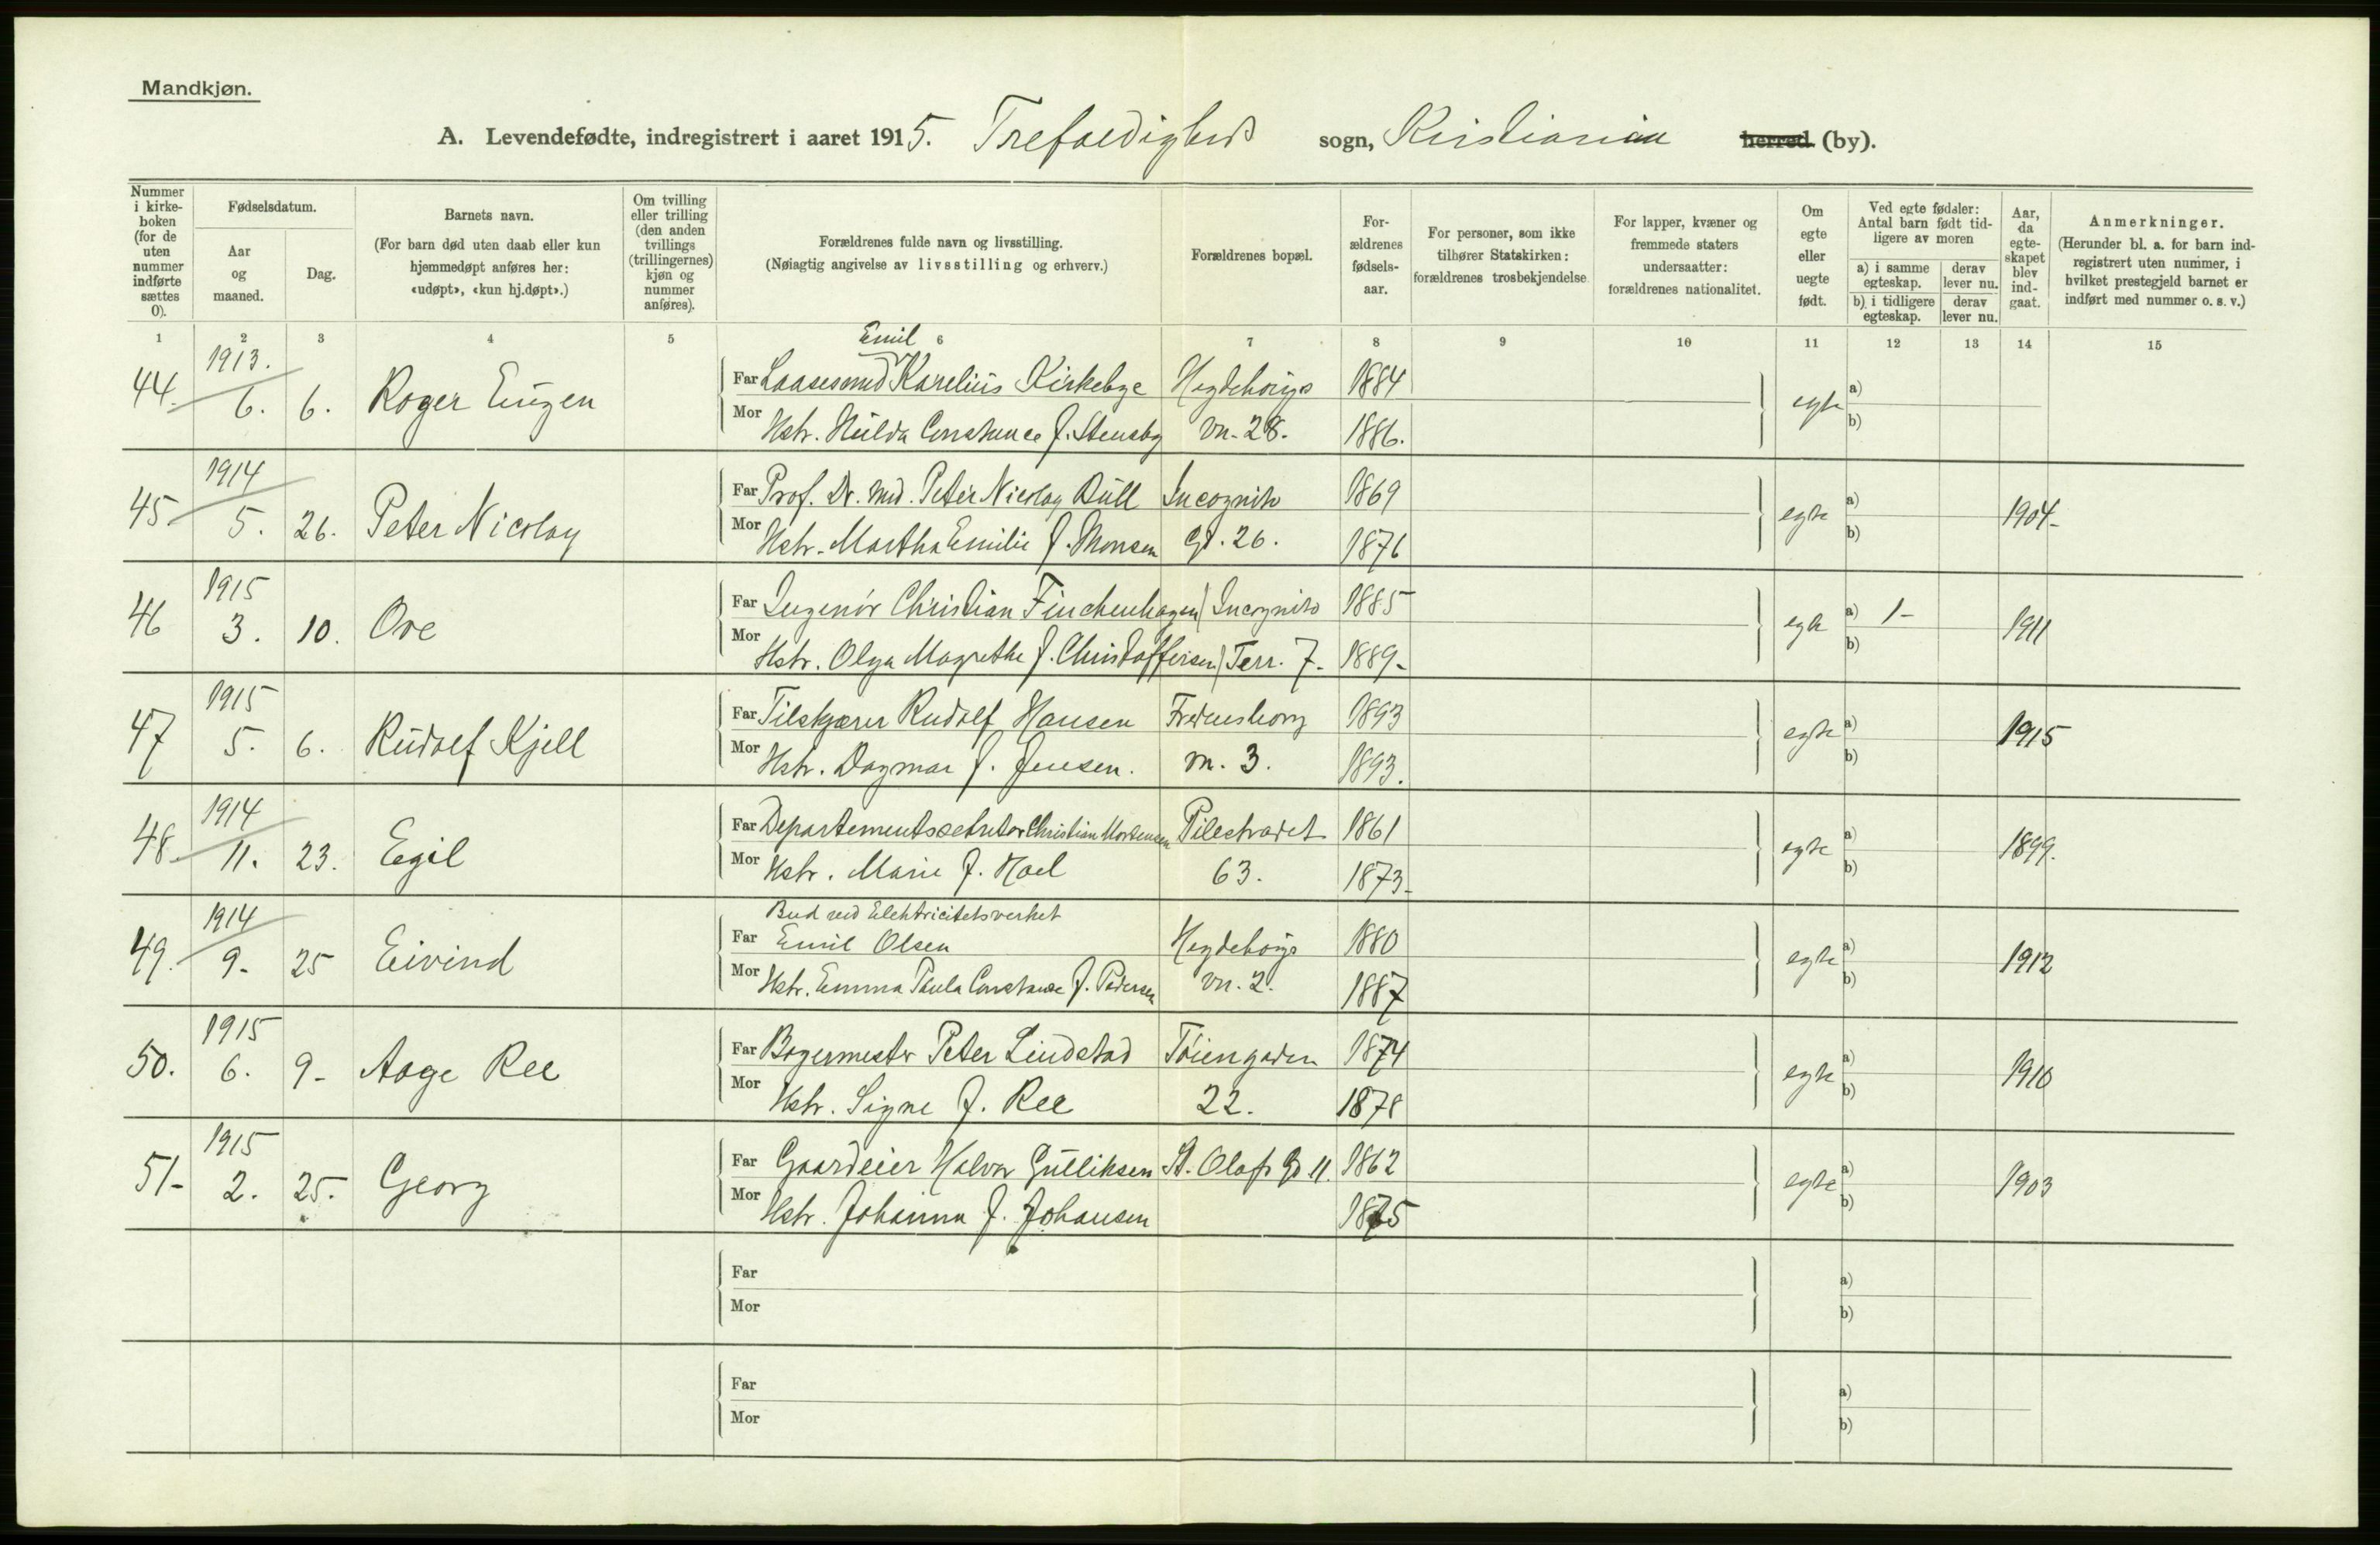 Mandkjøn.
A. Levendefødte, indregistrert i aaret 1915. Trefoldigheds sogn, Kristiania herred (by).
Nummer i kirkeboken (for de uten nummer indførte sættes 0).
Fødselsdatum.
Aar og maaned.
Dag.
Barnets navn.
(For barn død uten daab eller kun hjemmedøpt anføres her: «udøpt», «kun hj.døpt».)
Om tvilling eller trilling (den anden tvillings (trillingernes) kjøn og nummer anføres).
Forældrenes fulde navn og livsstilling.
(Nøiagtig angivelse av livsstilling og erhverv.)
Forældrenes bopæl.
Forældrenes fødselsaar.
For personer, som ikke tilhører Statskirken: forældrenes trosbekjendelse
For lapper, kvæner og fremmede staters undersaatter: forældrenes nationalitet.
Om egte eller uegte født.
Ved egte fødsler: Antal barn født tidligere av moren
a) i samme egteskap. derav lever nu.
b) i tidligere egteskap. derav lever nu.
Aar, da egteskapet blev indgaat.
Anmerkninger.
(Herunder bl. a. for barn indregistrert uten nummer, i hvilket prestegjeld barnet er indført med nummer o. s. v.)
1 2 3 4 5 6 7 8 9 10 11 12 13 14 15
44. 1913. 6. 6. Roger Eugen
Emil
Far Laasesmed Karelius Kirkebye Hegdehaugs 1884
Mor Hstr. Hulda Constance f. Stensby vn. 28. 1886.
egte a) b)
45 1914 5. 26. Peter Nicolay
Far Prof. Dr. med. Peter Nicolay Bull Incognito 1869
Mor Hstr. Martha Emilie f. Monsen Gt. 26. 1876
egte a) b) 1904-
46 1915 3. 10. Ove
Far Ingeniør Christian Finchenhagen Incognito 1885
Mor Hstr. Olga Magrethe f. Christoffersen Terr. 7- 1889-
egte a) 1- b) 1911
47 1915 5. 6. Rudolf Kjell
Far Tilskjærer Rudolf Hansen Fredensborg 1893
Mor Hstr. Dagmar f. Jensen. vn. 3. 1893.
egte a) b) 1915
48 1914 11. 23. Egil
Far Departementssekretær Christian Mortensen Pilestrædet 1861
Mor Hstr. Marie f. Hoel 63. 1873-
egte a) b) 1899.
49. 1914 9- 25 Eivind
Bud ved Elektricitetsverket
Far Emil Olsen Hegdehaugs 1880
Mor Hstr. Emma Paula Constanse f. Pedersen vn. 2. 1887
egte a) b) 1912
50. 1915 6. 9- Aage Ree
Far Bagermester Peter Lindstad Tøiengaden 1874
Mor Hstr. Signe f. Ree 22. 1878
egte a) b) 1910
51- 1915 2. 25. Georg
Far Gaardeier Halvor Gulliksen St. Olafs Gd 11. 1862
Mor Hstr. Johanna f. Johansen 1875
egte a) b) 1903
Far a)
Mor b)
Far a)
Mor b)